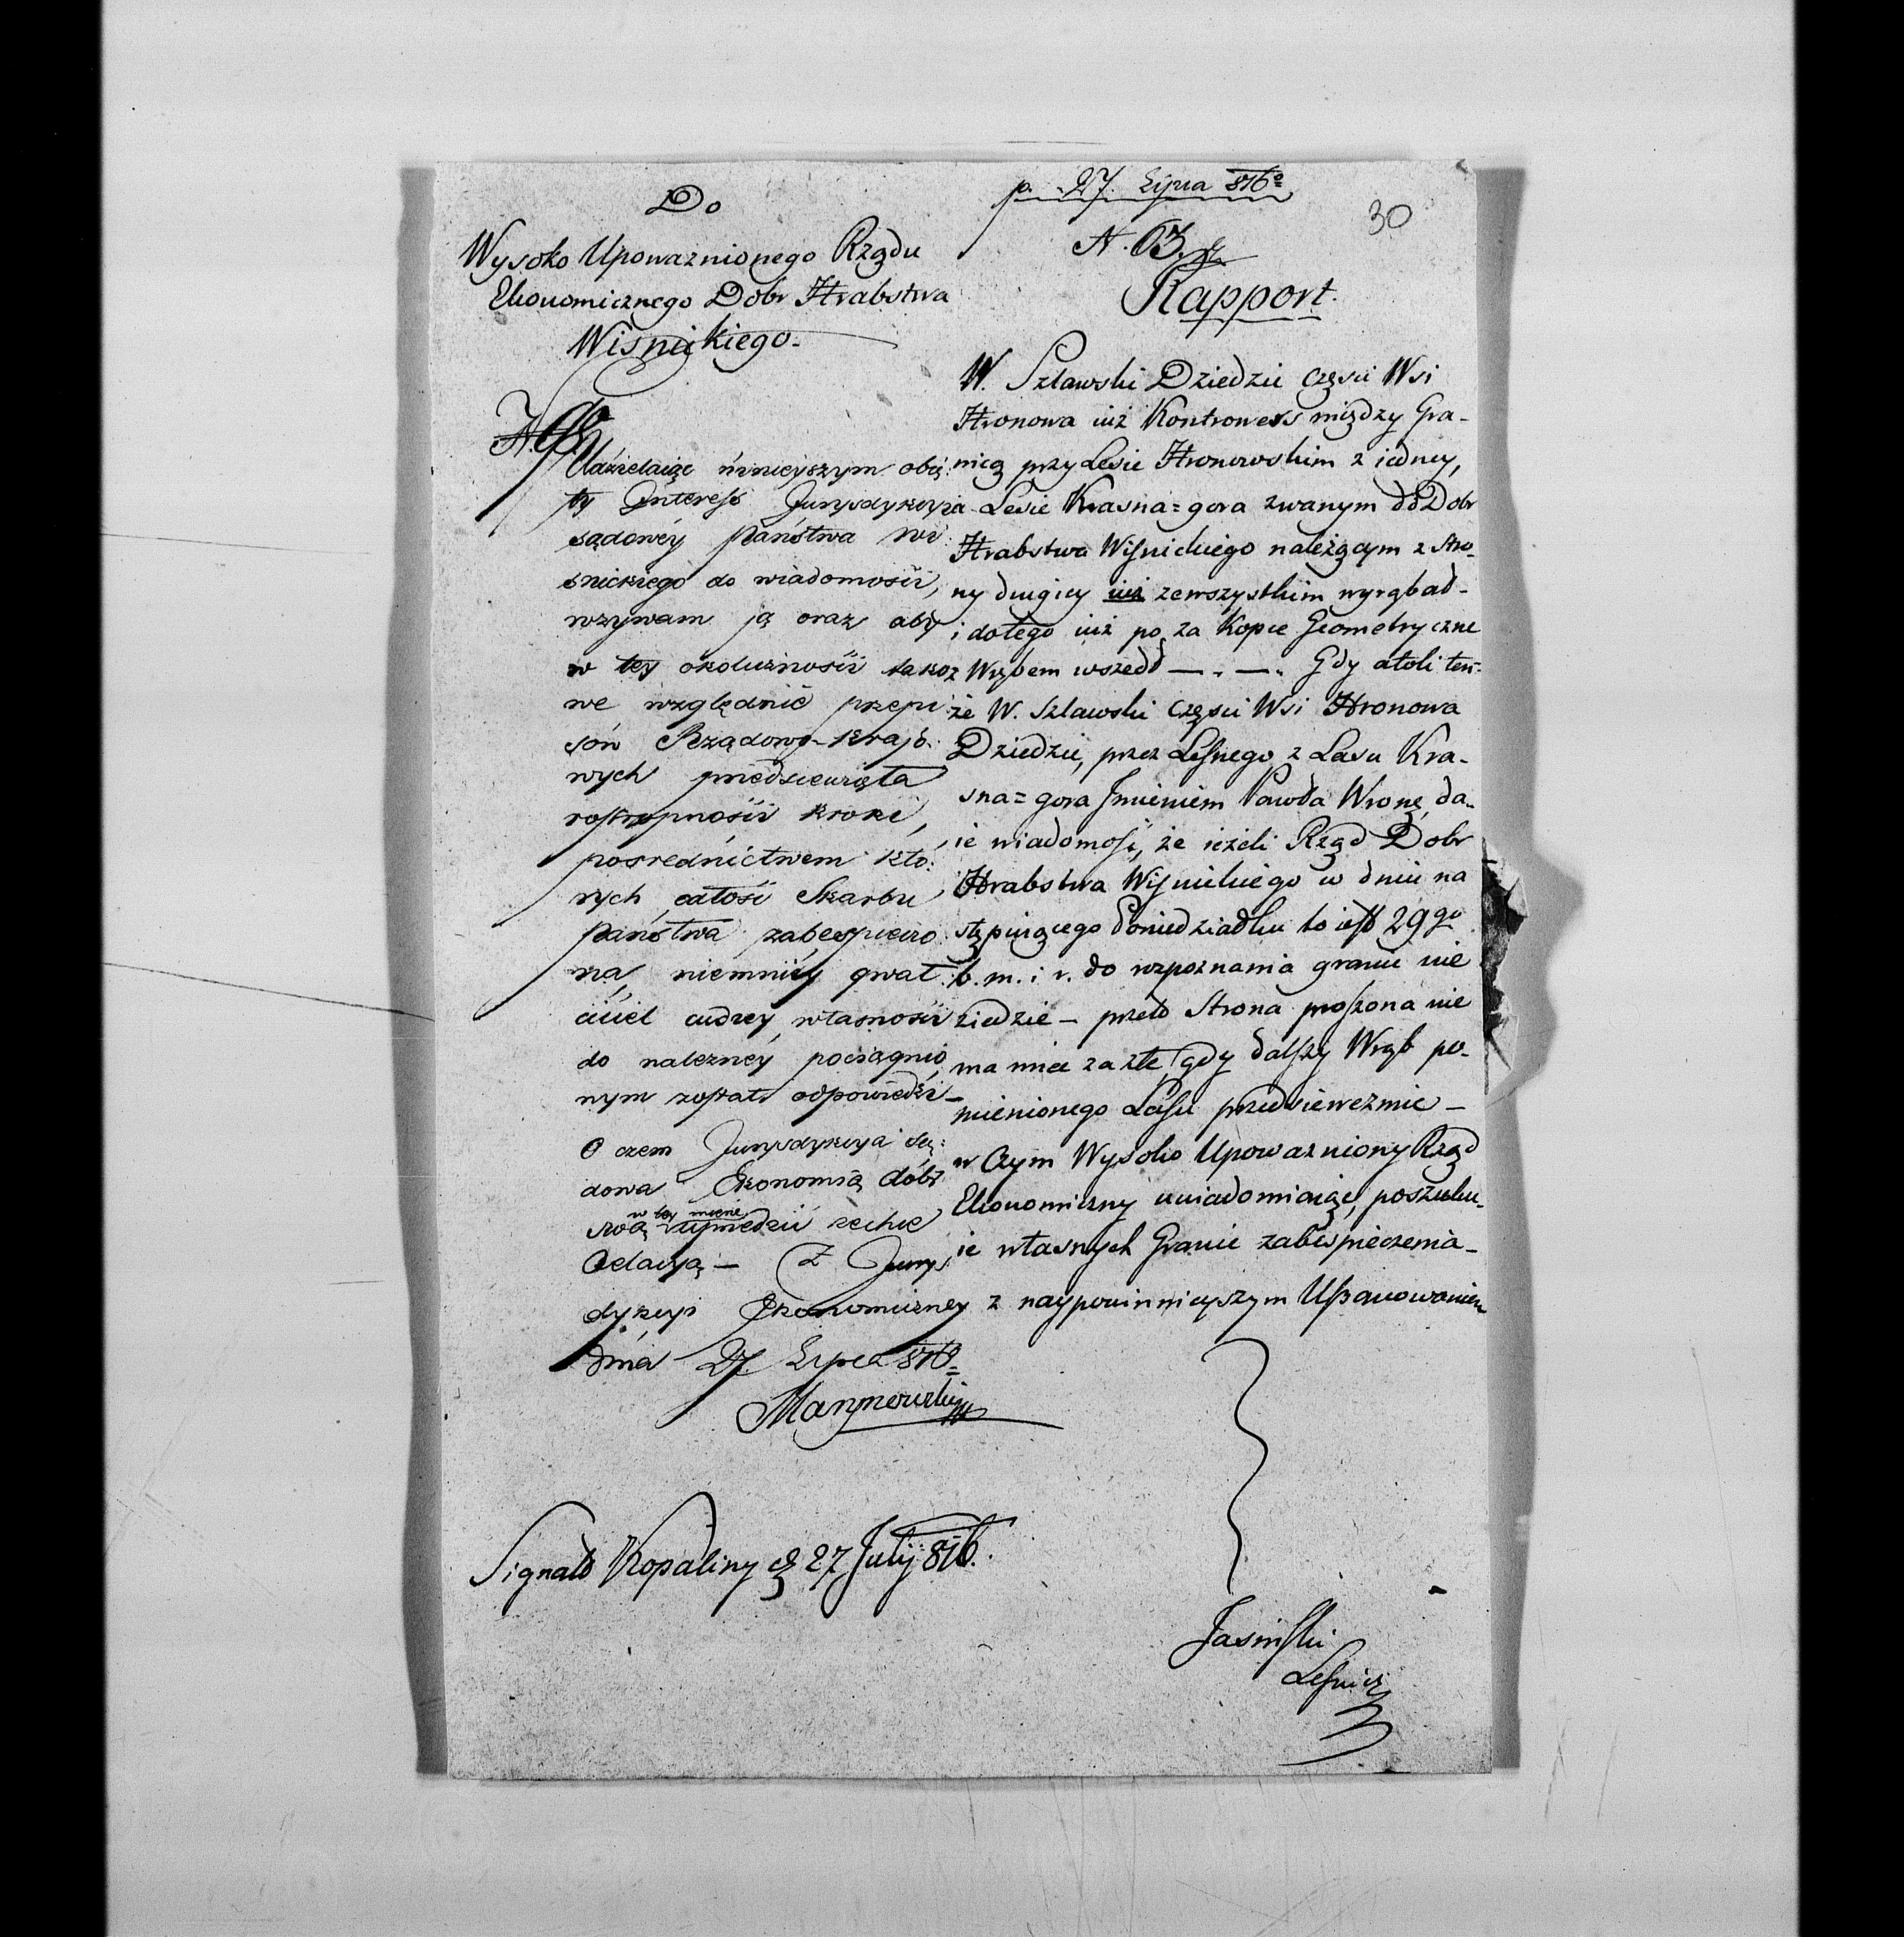 Do
Wysoko Upoważnionego Rządu
Ekonomicznego Dobr Hrabstwa
Wisnickiego.
p. 27. Lipca 816º
30
N. 63.
Rapport.
W. Szlawski Dziedzic części Wsi
Hronowa iuż Kontrowers między Gra-
nicą przy Lesie Hronowskim z iedney,
a Lesie Krasna=gora zwanym do Dobr
Hrabstwa Wisnickiego należącym z stro-
ny drugiey iuż zewszystkim wyrąbał-
i dotego iuż po za Kopce Geometryczne
z Wrębem wszedł —.—. Gdy atoli ten-
że W. Szlawski części Wsi Hronowa
Dziedzic, przez Lesnego z Lasu Kra-
sna=gora Jmieniem Pawła Wronę, da-
ie wiadomość, że ieżeli Rząd Dobr
Hrabstwa Wisnickiego w dniu na
stępuiącego Poniedziałku to iest 29go
b. m. i r. do rozpoznania granic nie
ziedzie — przeto Strona proszona nie
ma mieć za złe, gdy dalszy Wrąb po-
mienionego Lasu przedsiewezmie —
w Czym Wysoko Upoważniony Rząd
Ekonomiczny uwiadomiaiąc, poszuku-
ie własnych Granic zabespieczenia —
z naypowinnieyszym Uszanowaniem
Jasinski
Lesnicz
Udzielaiąc ninieyszym obię:
ty Interess Jurysdykcyi
sądowéy Państwa Wi:
snickiego do wiadomości,
wzywam ją oraz aby
w tey okoliczności
we względnie przepi:
sów Rządowo-Krajo:
wych przedsiewzięła
rostropności kroki,
pośrednictwem któ:
rych całość Skarbu
Państwa zabespieczo:
na, niemniéy gwał:
ciciel cudzey własności
do należnéy pociągnio
nym został odpowiedzi —
O czem Jurysdykcya Są:
dowa Ekonomią dóbr
swą w tey mierze uprzedzić zechce
Odezwą — Z Jurys
dykcyi Ekonomiczney
dnia 27. Lipca 816º
Signato Kopaliny d 27 July 816.